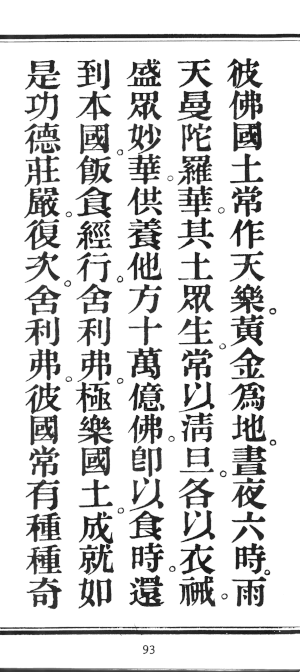 彼佛國土常作天樂。黃金爲地。晝夜六時。雨
天曼陀羅華。其土眾生。常以淸旦。各以衣裓。
盛眾妙華。供養他方十萬億佛。卽以食時。還
到本國。飯食經行。舍利弗。極樂國土。成就如
是功德莊嚴。復次。舍利弗。彼國常有種種奇
93